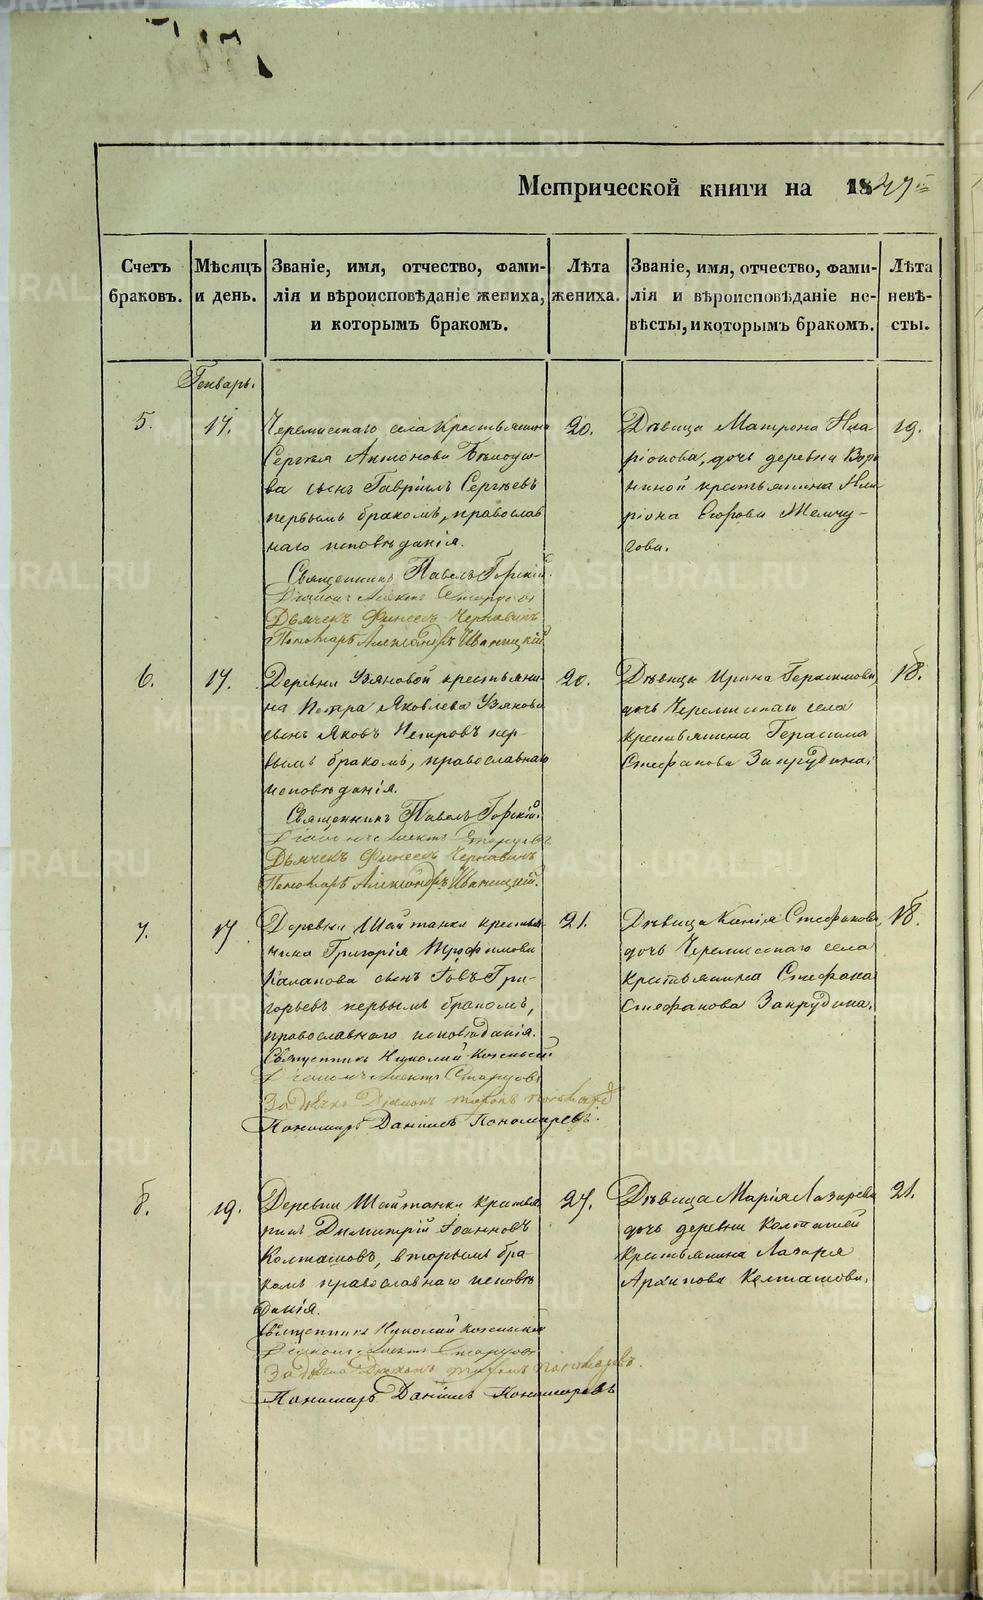 Метрической книги на 1847й
Счетъ браковъ.
Мѣсяцъ и день.
Званіе, имя, отчество, фами-
лія и вѣроисповѣданіе жениха,
и которымъ бракомъ.
Лѣта жениха.
Званіе, имя, отчество, фами-
лія и вѣроисповѣданіе не-
вѣсты, и которымъ бракомъ.
Лѣта невѣ-
сты.
Генварь.
5. 17.
Черемискаго села Крестьянина
Сергѣя Антонова
ва сынъ Гавріилъ Сергѣевъ
первымъ бракомъ, православ
наго исповѣданія.
Священникъ Павелъ Горскій.
Діаконъ
Дьячекъ Финеесъ Чернавинъ
Пономарь Александръ Иваницкій
20.
Дѣвица Матрона Ила
ріонова, дочь деревни Воро
ниной крестьянина Ила
ріона Егорова Мелчу-
гова.
19.
6. 17.
Деревни Узяновой крестьяни-
на Петра Яковлева Узянова
сынъ Яковъ Петровъ пер
вымъ бракомъ, православнаго
исповѣданія.
Священникъ Павелъ Горскій.
Діаконъ
Дьячекъ Финеесъ Чернавинъ
Пономарь Александръ Иваницкій.
20.
Дѣвица Ирина Герасимова,
дочь Черемискаго села
крестьянина Герасима
Стефанова Закрудина.
18.
7. 17
Деревни Шайтанки крестья-
нина Григорія Трофимова
сынъ Іовъ Гри-
горьевъ первымъ бракомъ,
православнаго исповѣданія.
Священникъ Николай
Діаконъ
За дьячка Діаконъ
Пономарь Даніилъ Пономаревъ.
21.
Дѣвица Ксенія Стефанова,
дочь Черемисскаго села
крестьянина Стефана
Стефанова Закрудина.
18.
8. 19.
Деревни Шайтанки крестья
нинъ Димитрій Іоанновъ
Колташовъ, вторымъ бра-
комъ православнаго исповѣ
данія.
Священникъ Николай
Діаконъ
За дьячка Діаконъ
Пономарь Даніилъ Пономаревъ
27.
Дѣвица Марія Лазарева
дочь деревни Колташей
крестьянина Лазаря
Архипова Колташова.
21.
METRIKI.GASO-URAL.RU